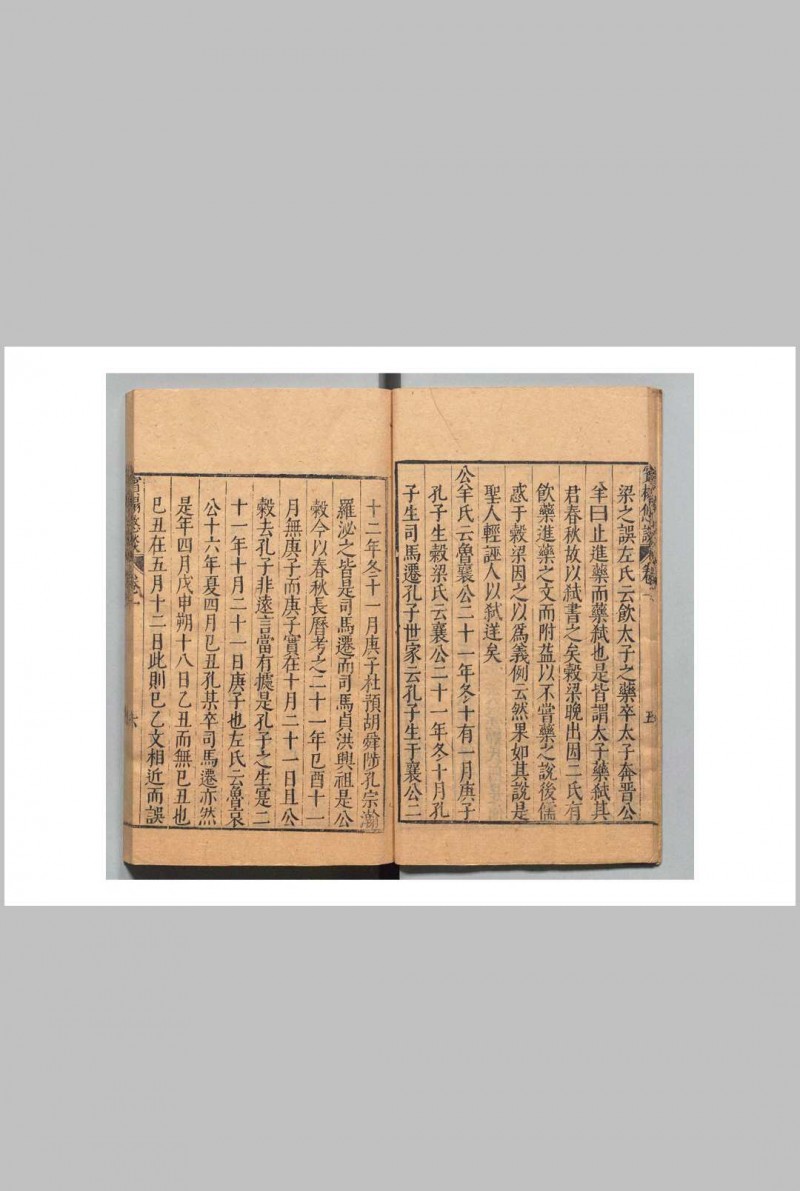 梁之誤左氏云飲太子之藥卒太子奔晉公
羊曰止進藥而藥弑也是皆謂太子藥弑其
君春秋故以弑書之矣榖梁晚出因二氏有
飲藥進藥之文而附益以不嘗藥之說後儒
惑于榖梁因之以爲義例云然果如其說是
聖人輕誣人以弑逆矣
公羊氏云魯襄公二十一年冬十有一月庚子
孔子生榖梁氏云襄公二十一年冬十月孔
子生司馬遷孔子世家云孔子生于襄公二
卷一
五
十二年冬十一月庚子杜預胡舜陟孔宗瀚
羅泌之皆是司馬遷而司馬貞洪興祖是公
榖今以春秋長曆考之二十一年巳酉十一
月無庚子而庚子實在十月二十一日且公
榖去孔子非遠言當有據是孔子之生寔二
十一年十月二十一日庚子也左氏云魯哀
公十六年夏四月巳丑孔某卒司馬遷亦然
是年四月戊申朔十八日乙丑而無巳丑也
巳丑在五月十二日此則巳乙文相近而誤
卷一
六